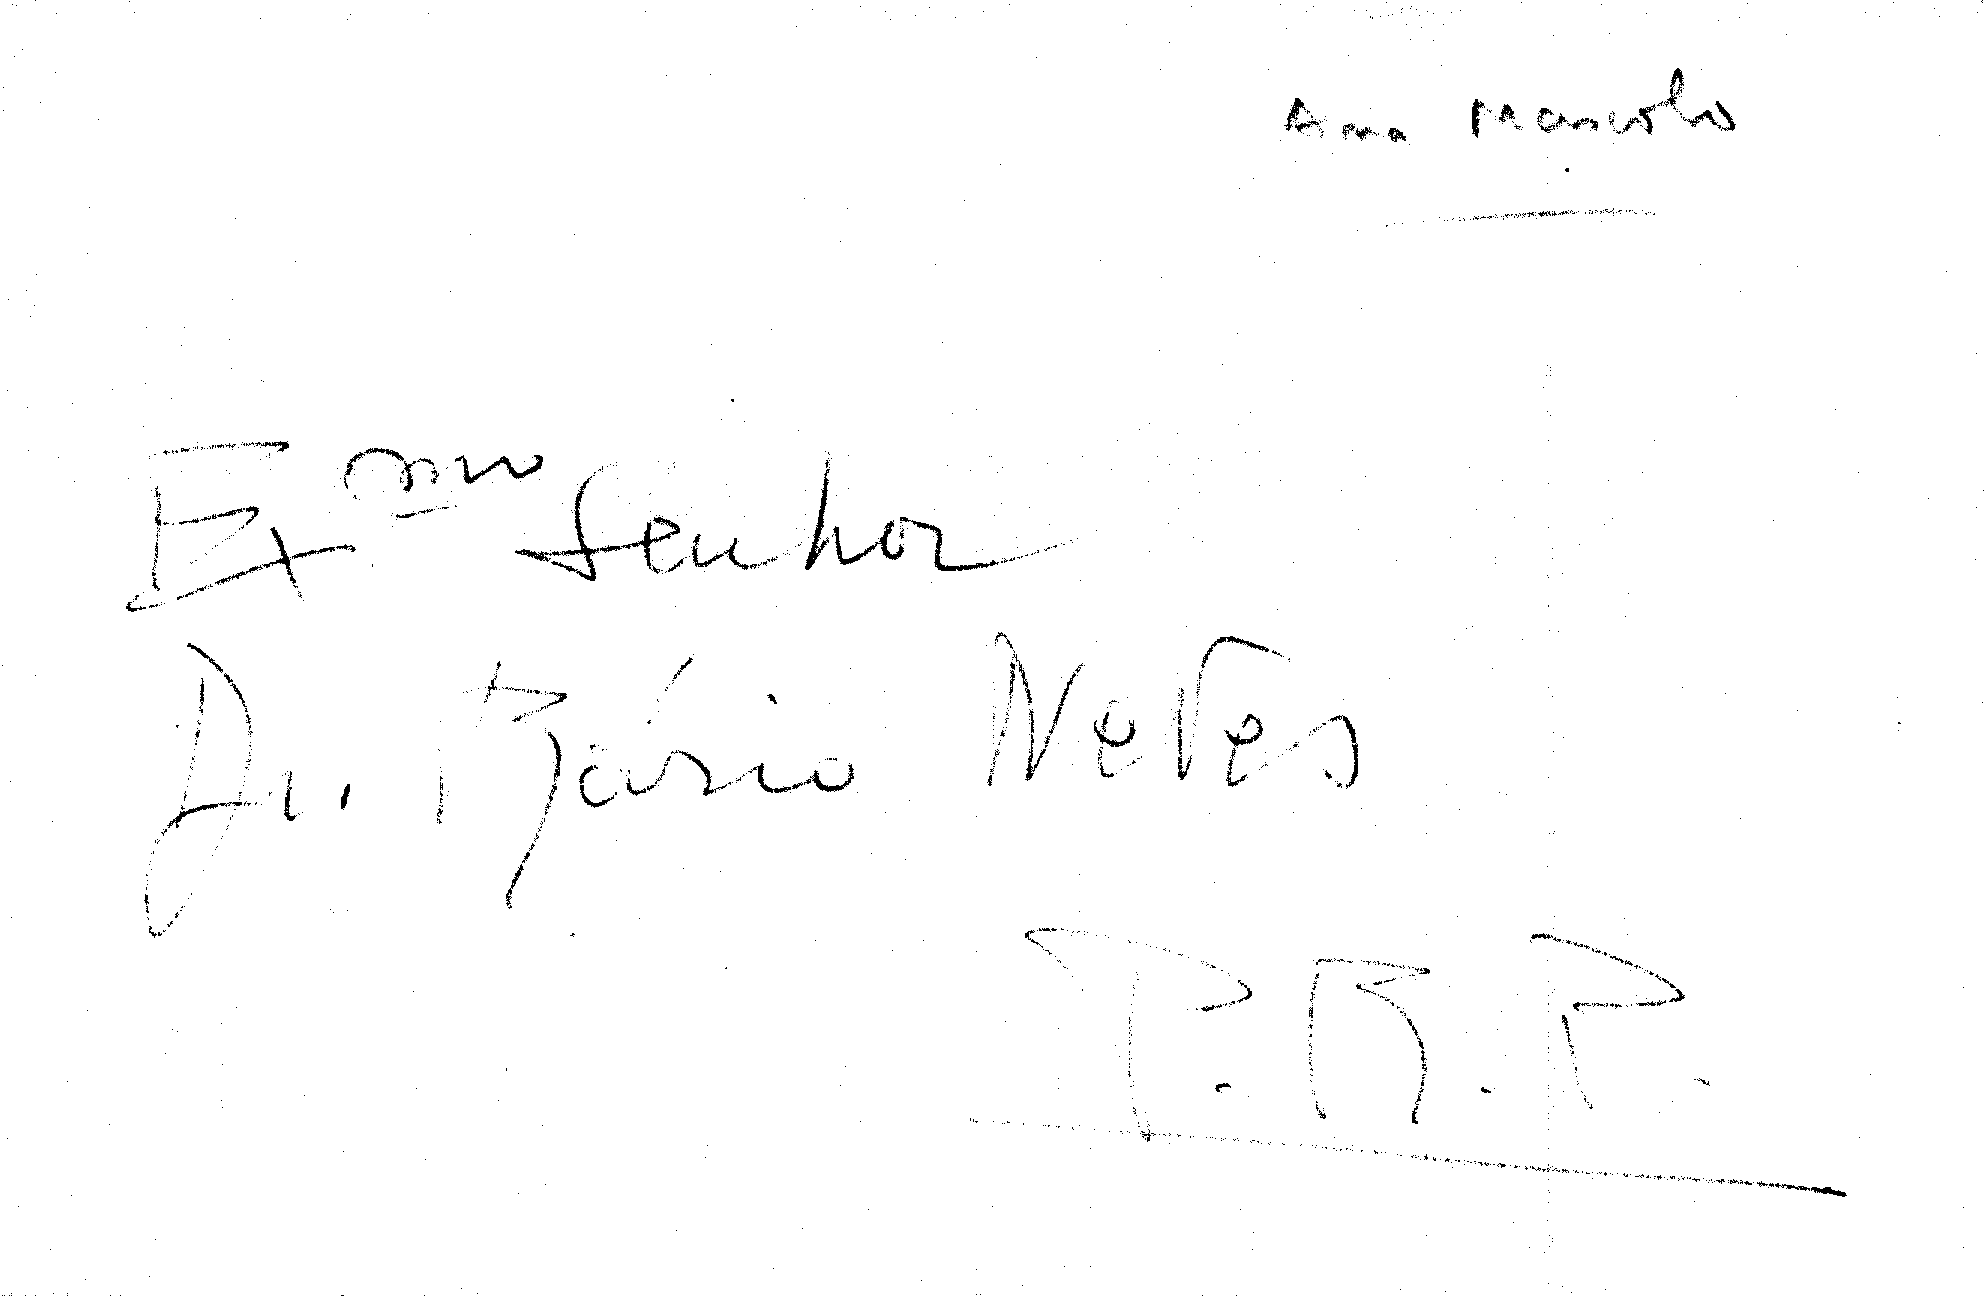 Ana Mascolo
Exmo Senhor
Dr. Mário Neves
P.R.P.